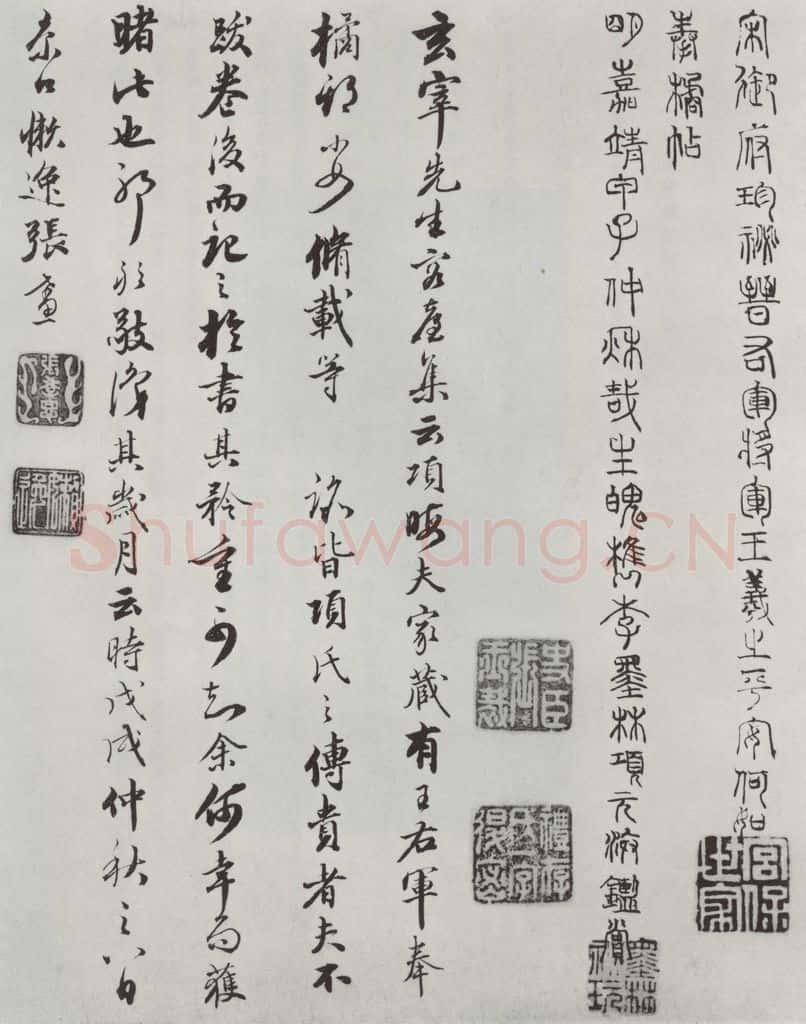 宋御府珍祕晉右軍將軍王羲之平安何如
奉橘帖
明嘉靖甲子仲秋哉生魄檇李墨林項元汴鑑賞
玄宰先生容臺集云項晦夫家藏有王右軍奉
橘 備載 皆項氏之傳貴者夫不
跋卷後而記之於書其矜重可知余何幸而獲
睹此也耶 敬識其歲月云時戊戌仲秋之八日
京口懶逸張
宮保世家
墨林祕玩
Shufawang.CN